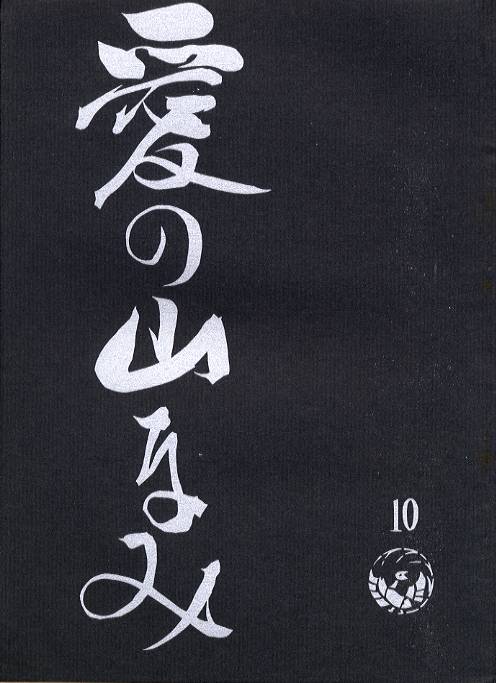 愛の山なみ
10